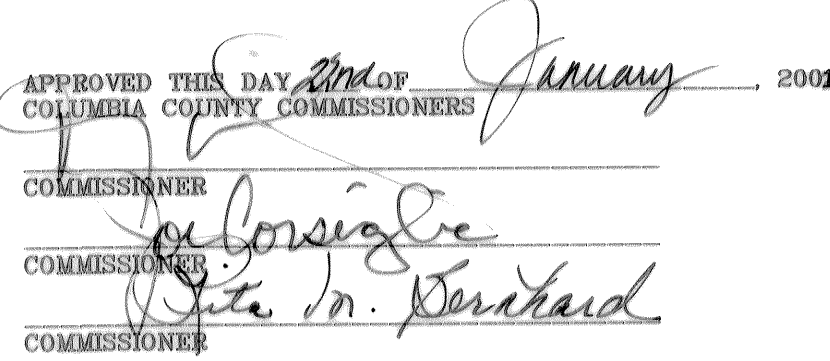 APPROVED THIS DAY 22nd OF January, 2001
COLUMBIA COUNTY COMMISSIONERS
COMMISSIONER
Joe Corsiglia
COMMISSIONER
Rita M. Bernhard
COMMISSIONER